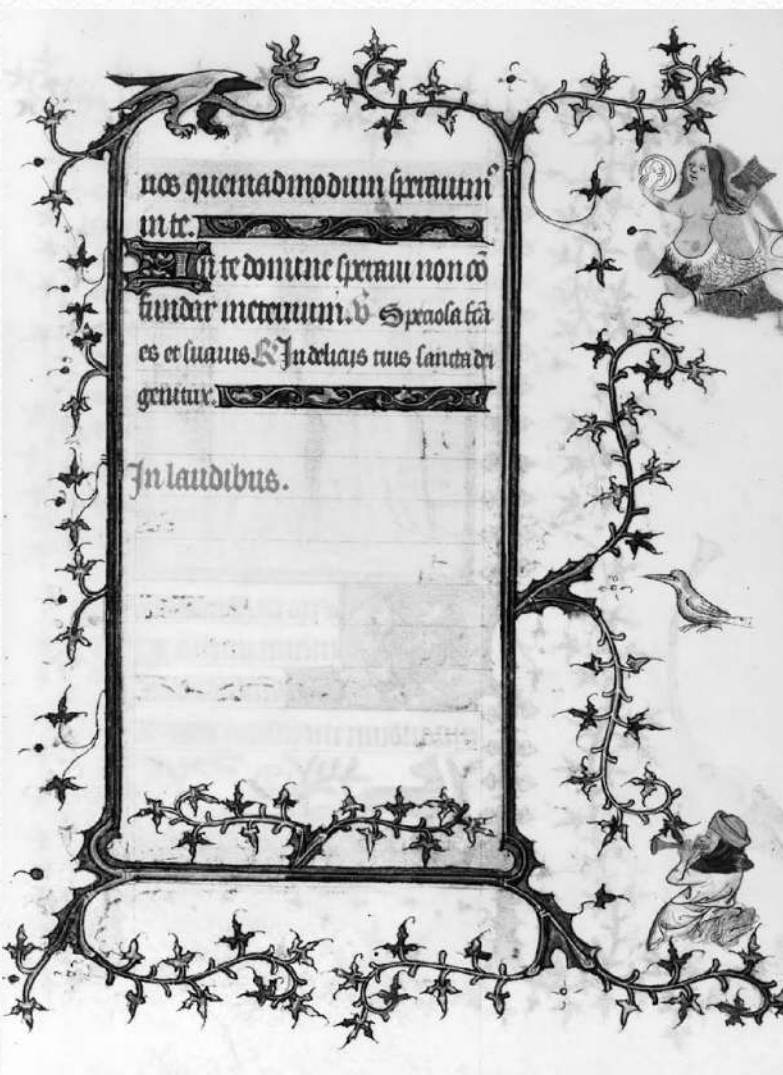 nos quemadmodum sperauim⁹
in te.
In te domine speraui non cō
fundar in eternum. ℣ Speciosa fc̄a
es et suauis ℟ In deliciis tuis sancta dei
genitrix.
In laudibus.